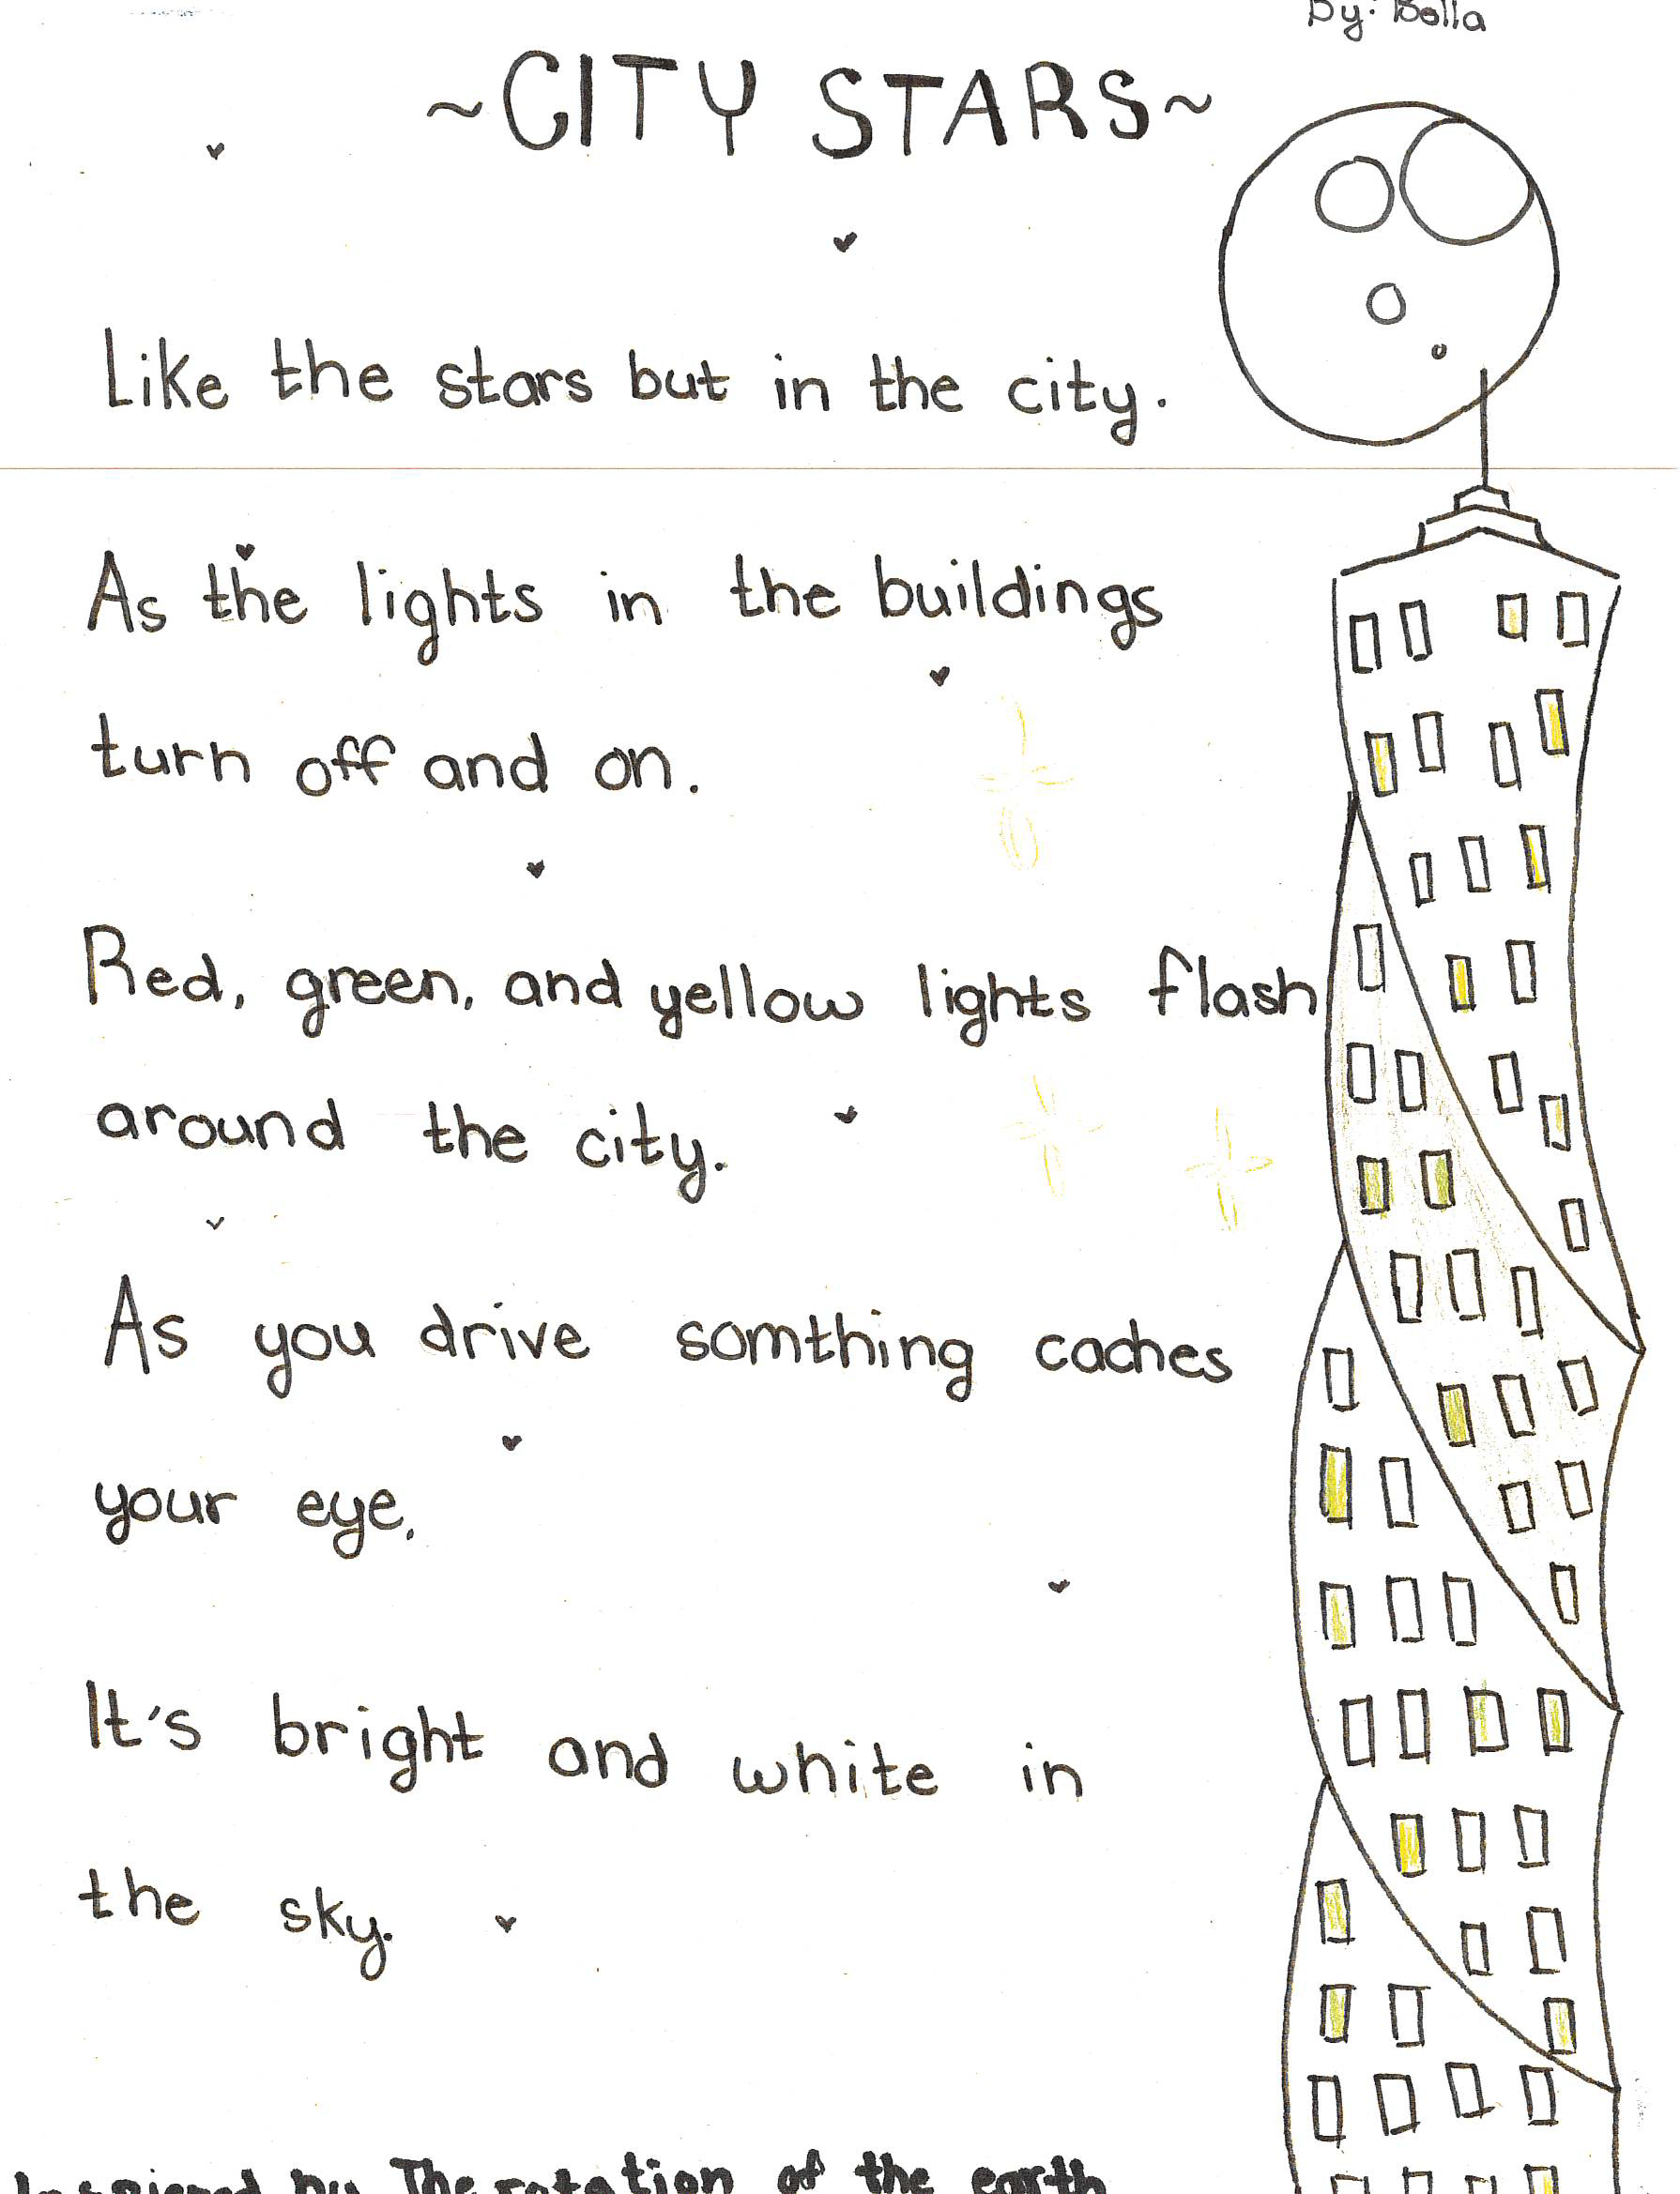 By: Bella
~CITY STARS~
Like the stars but in the city.
As the lights in the buildings
turn off and on.
Red, green, and yellow lights flash
around the city.
As you drive somthing caches
your eye.
It's bright and white in
the sky.
by The rotation of the earth